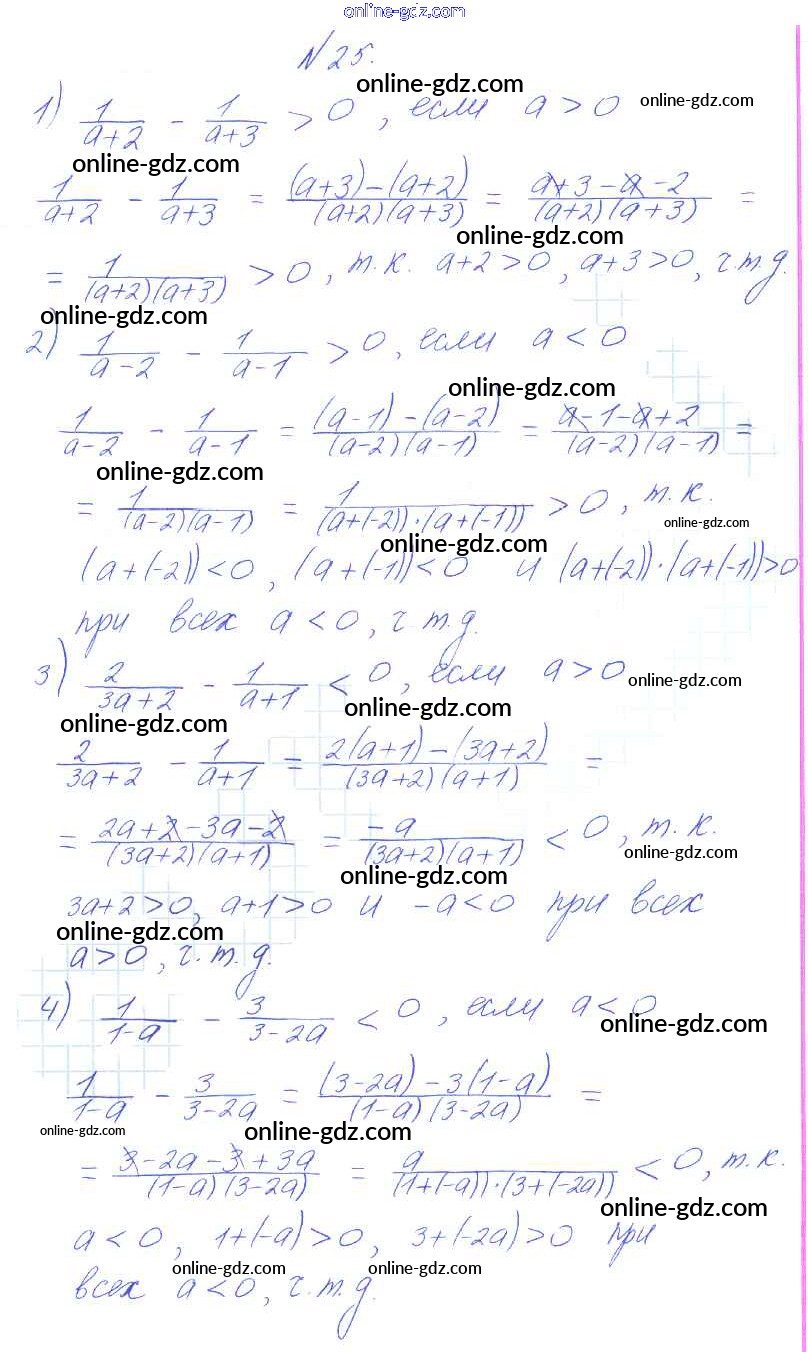 online-gdz.com
№25.
online-gdz.com
1) 1/(a+2) - 1/(a+3) > 0, если a > 0 online-gdz.com
online-gdz.com
1/(a+2) - 1/(a+3) = ((a+3)-(a+2))/((a+2)(a+3)) = (a+3-a-2)/((a+2)(a+3)) =
online-gdz.com
= 1/((a+2)(a+3)) > 0, т.к. a+2>0, a+3>0, ч.т.д.
online-gdz.com
2) 1/(a-2) - 1/(a-1) > 0, если a < 0
online-gdz.com
1/(a-2) - 1/(a-1) = ((a-1)-(a-2))/((a-2)(a-1)) = (a-1-a+2)/((a-2)(a-1)) =
online-gdz.com
= 1/((a-2)(a-1)) = 1/((a+(-2))·(a+(-1))) > 0, т.к.
online-gdz.com
online-gdz.com
(a+(-2))<0, (a+(-1))<0 и (a+(-2))·(a+(-1))>0
при всех a<0, ч.т.д.
3) 2/(3a+2) - 1/(a+1) < 0, если a > 0 online-gdz.com
online-gdz.com online-gdz.com
2/(3a+2) - 1/(a+1) = (2(a+1)-(3a+2))/((3a+2)(a+1)) =
= (2a+2-3a-2)/((3a+2)(a+1)) = -a/((3a+2)(a+1)) < 0, т.к.
online-gdz.com
online-gdz.com
3a+2>0, a+1>0 и -a<0 при всех
online-gdz.com
a>0, ч.т.д.
4) 1/(1-a) - 3/(3-2a) < 0, если a<0
online-gdz.com
1/(1-a) - 3/(3-2a) = ((3-2a)-3(1-a))/((1-a)(3-2a)) =
online-gdz.com online-gdz.com
= (3-2a-3+3a)/((1-a)(3-2a)) = a/((1+(-a))·(3+(-2a))) < 0, т.к.
online-gdz.com
a<0, 1+(-a)>0, 3+(-2a)>0 при
online-gdz.com online-gdz.com
всех a<0, ч.т.д.